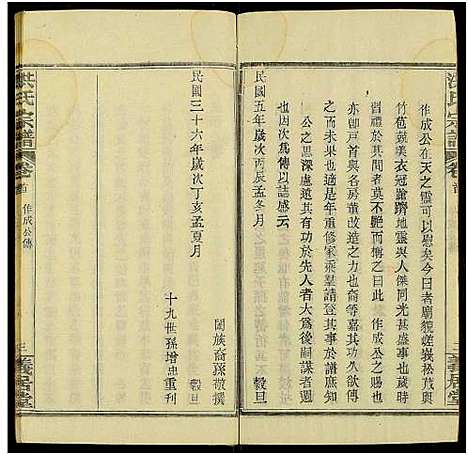 洪氏宗譜
卷首
三
義居堂
作成公在天之靈可以慰矣今日者廟貌嵯峩松茂與
竹苞競美衣冠蹌躋地靈與人傑同光甚盛事也歲時
習禮於其間者莫不穆然於
作成公之賜也
亦卽戸首與各房董改創成之功也裔等嘉其功久欲傳
而未果也適是年重修家乘羣請登其事於譜以示
公之思深慮遠其有功於先人者大爲後嗣謀者遠
也因次爲傳以誌感云
民國五年歲次丙辰孟冬月
穀旦
闔族裔孫
撰
民國三十六年歲次丁亥孟夏月
穀旦
十九世孫增忠重刊
洪氏宗譜
卷首
作成公傳
三
義居堂